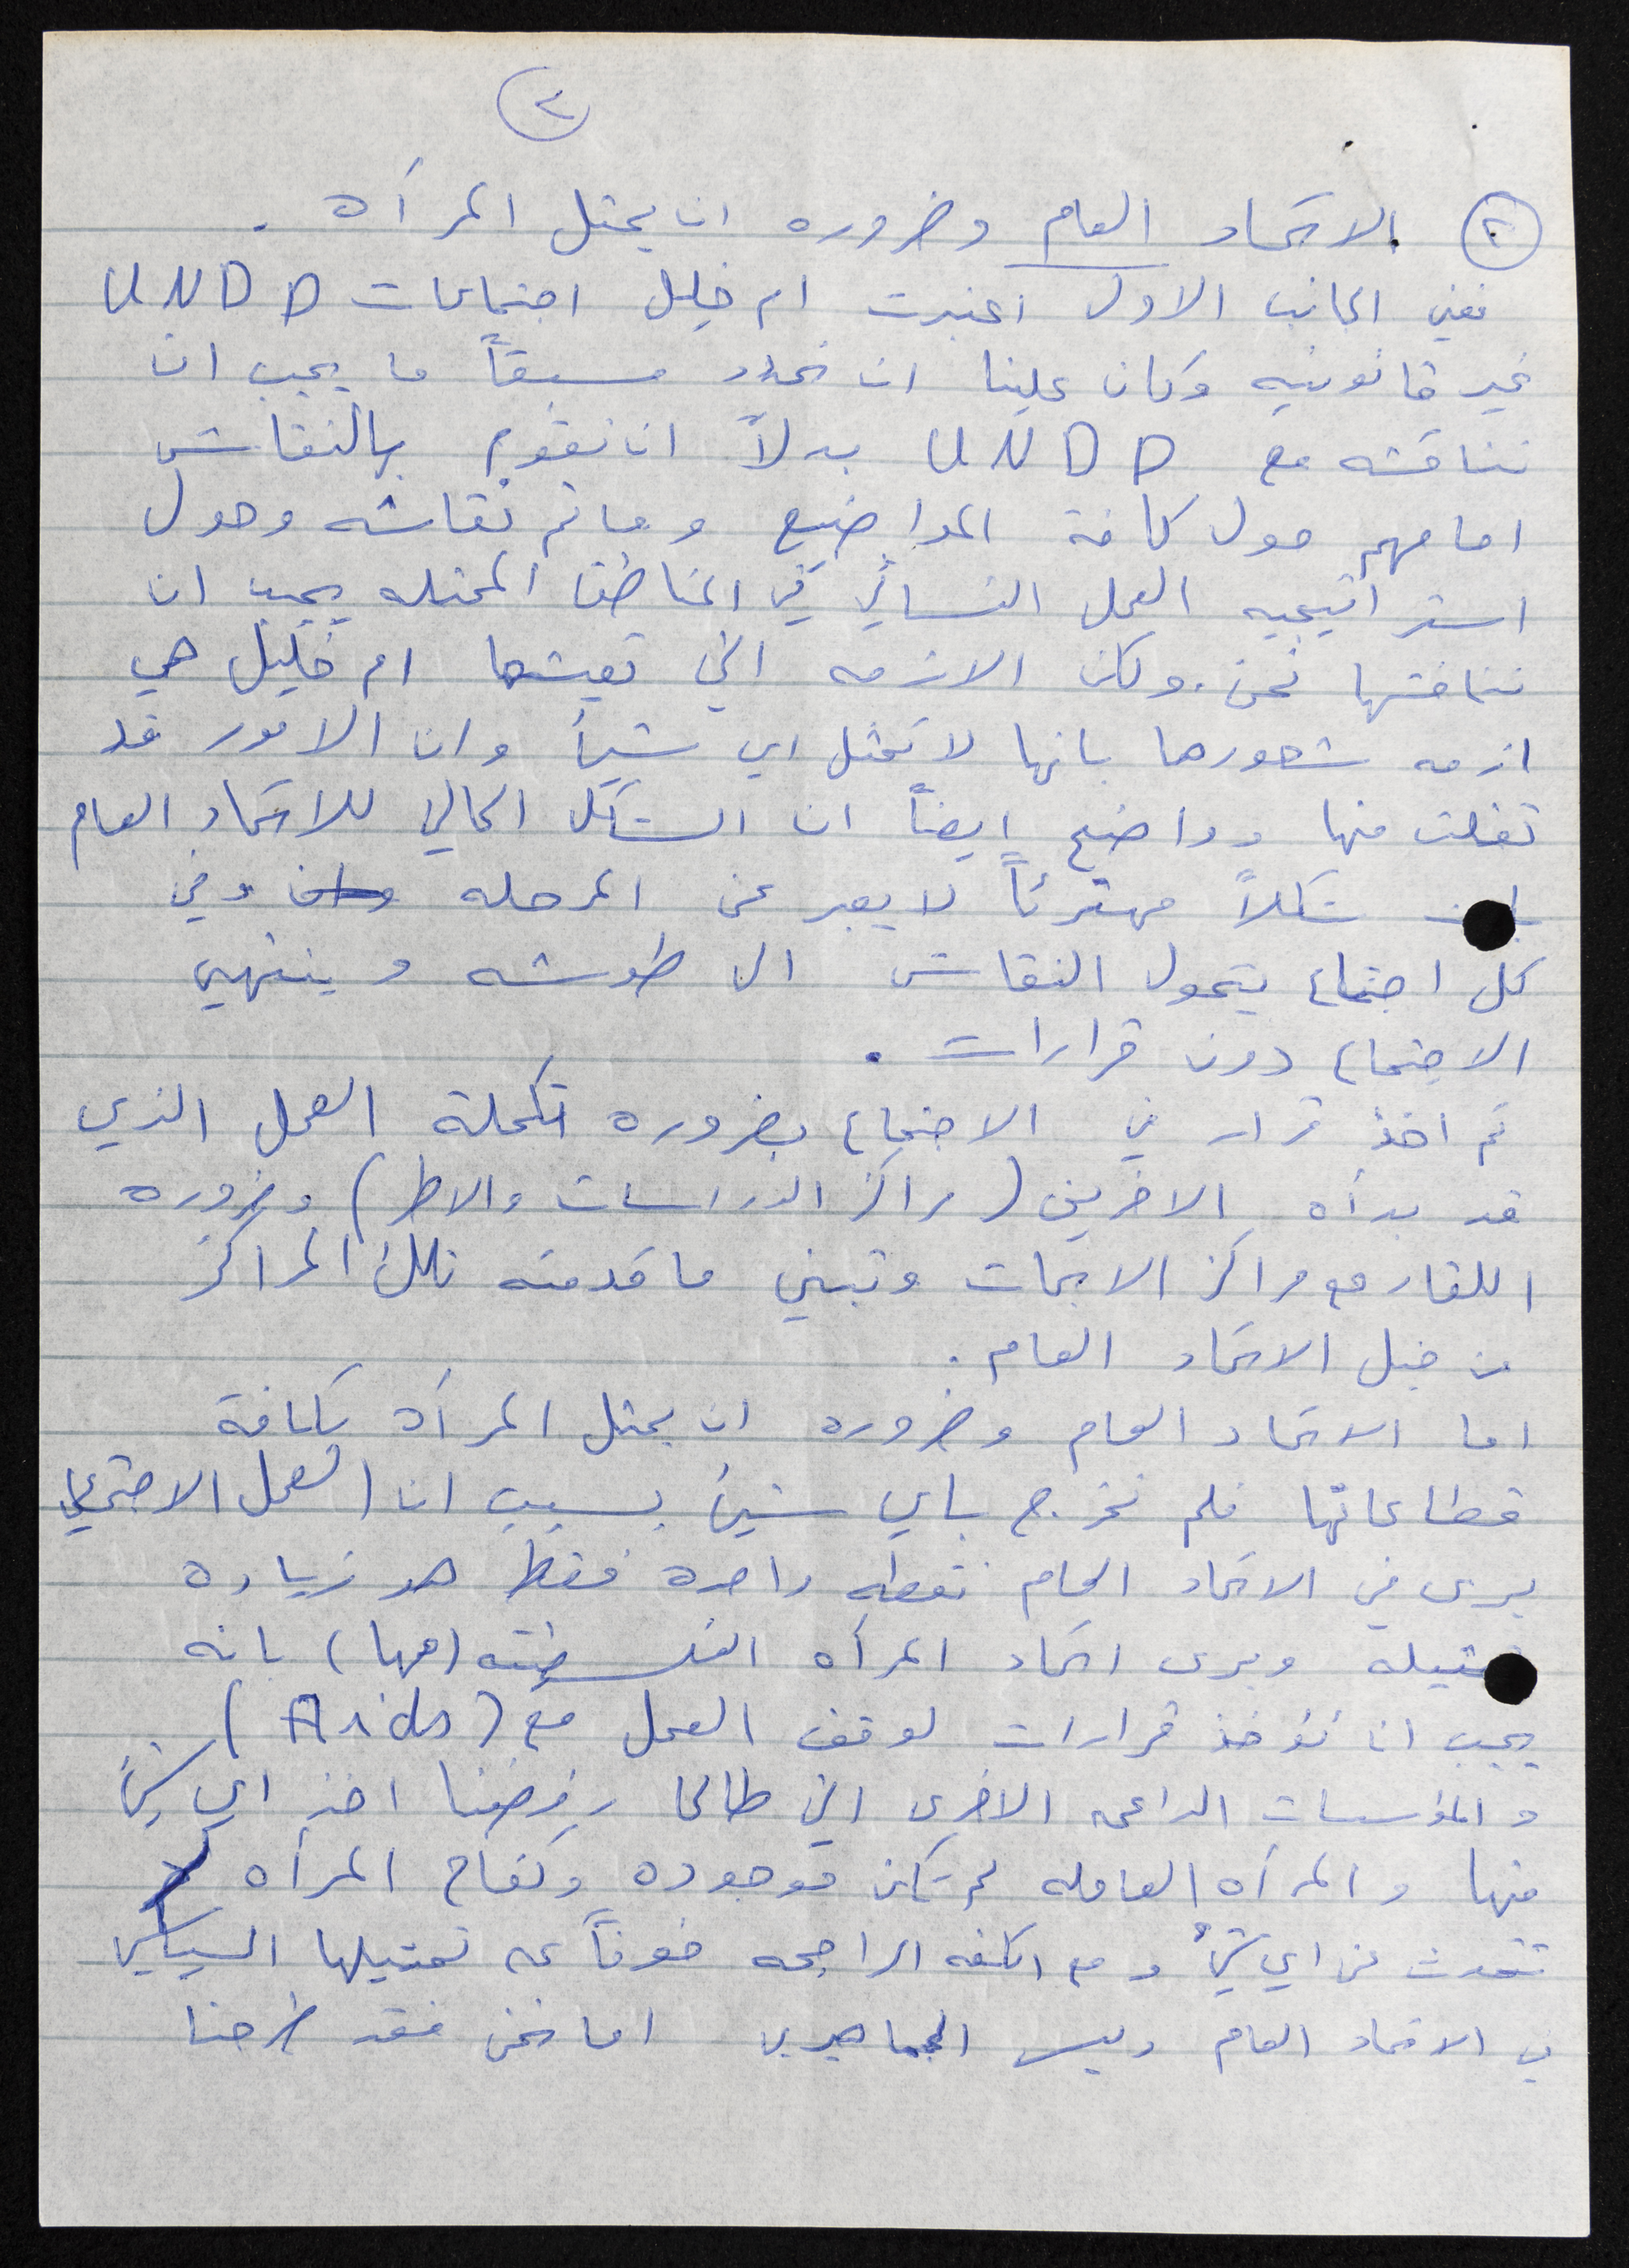 ٢
٢ الاتحاد العام وضروره ان يمثل المرأه .
ففي الجانب الاول اعتبرت ام خليل اجتماعات UNDP
غير قانونيه وكان علينا ان نحدد مسبقاً ما يجب ان
نناقشه مع UNDP بدلاً ان نقوم بالنقاش
امامهم حول كافة المواضيع وما تم نقاشه وحول
استراتيجيه العمل النسائي في المناطق المحتله يجب ان
نناقشها نحن . ولكن الازمه التي تعيشها ام خليل هي
ازمه شعورها بانها لا تمثل اي شيئ وان الامور قد
تفلت منها وواضح ايضاً ان الشكل الحالي للاتحاد العام
شكلاً مهترئاً لا يعبر عن المرحله وفي
كل اجتماع يتحول النقاش الى طوشه وينتهي
الاجتماع دون قرارات .
تم اخذ قرار في الاجتماع بضروره تكملة العمل الذي
قد بدأه الاخرين (مراكز الدراسات والاطر) وضروره
اللقاء مع مراكز الابحاث وتبني ما قدمته تلك المراكز
من قبل الاتحاد العام .
اما الاتحاد العام وضروره ان يمثل المرأة بكافة
قطاعاتها فلم نخرج باي شيئ بسبب ان العمل الاجتماعي
يرى في الاتحاد العام نقطه واحدة فقط هو زيادة
تمثيله ويرى اتحاد المرأه الفلسطينيه (مها) بانه
يجب ان نؤخذ قرارات لوقف العمل مع (Aids)
والمؤسسات الداعمه الاخرى التي طالما رفضنا اخذ اي شيئ
منها والمرأه العامله لم تكن موجوده وكفاح المرأه لا
تتحدث عن اي شيئ ومع الكفه الراجحه خوفاً على تمثيلها السياسي
في الاتحاد العام وليس الجماهيري اما نحن فقد طرحنا